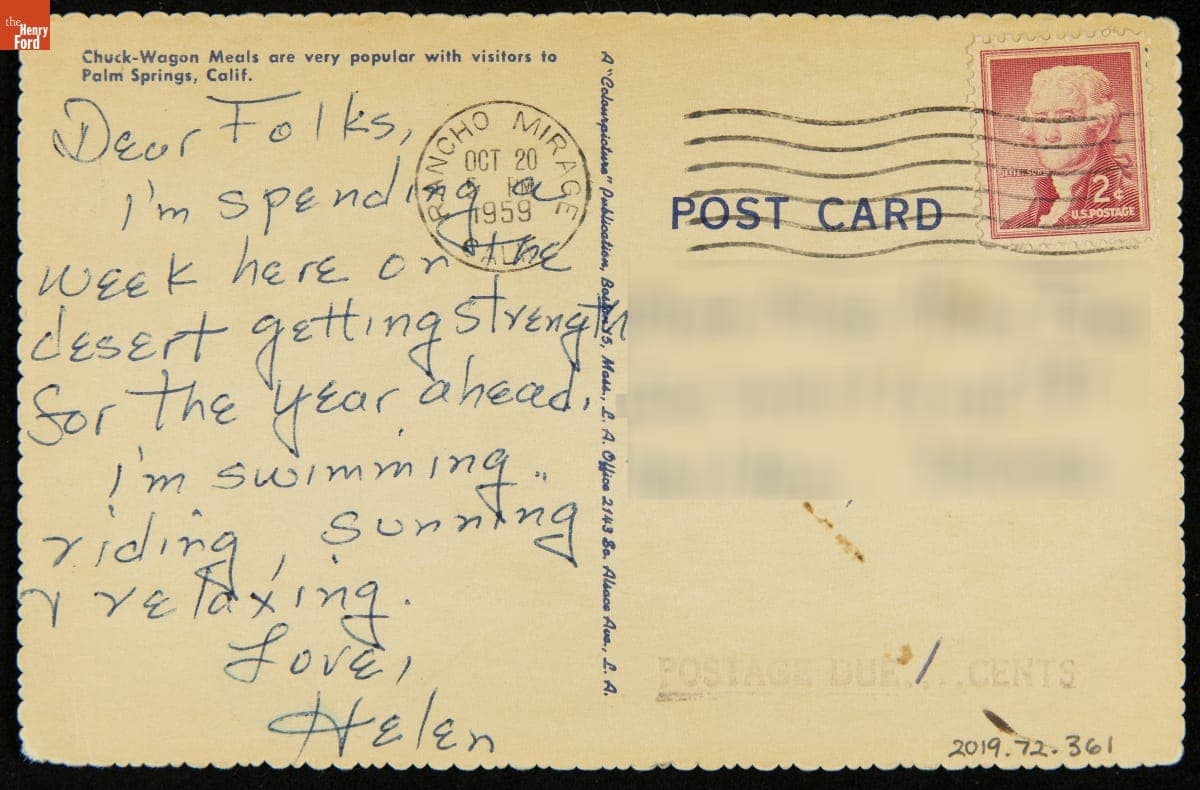 the
Henry
Ford
Chuck-Wagon Meals are very popular with visitors to
Palm Springs, Calif.
Dear Folks,
I'm spending a
week here on the
desert getting strength
for the year ahead.
I'm swimming..
riding, sunning
& relaxing.
Love,
Helen
RANCHO MIRAGE
OCT 20
PM
1959
CALIF
A "Colourpicture" Publication, Boston 15, Mass., L. A. Office 2143 So. Alsace Ave., L. A.
POST CARD
JEFFERSON
2¢
U.S. POSTAGE
POSTAGE DUE../..CENTS
2019.72.361